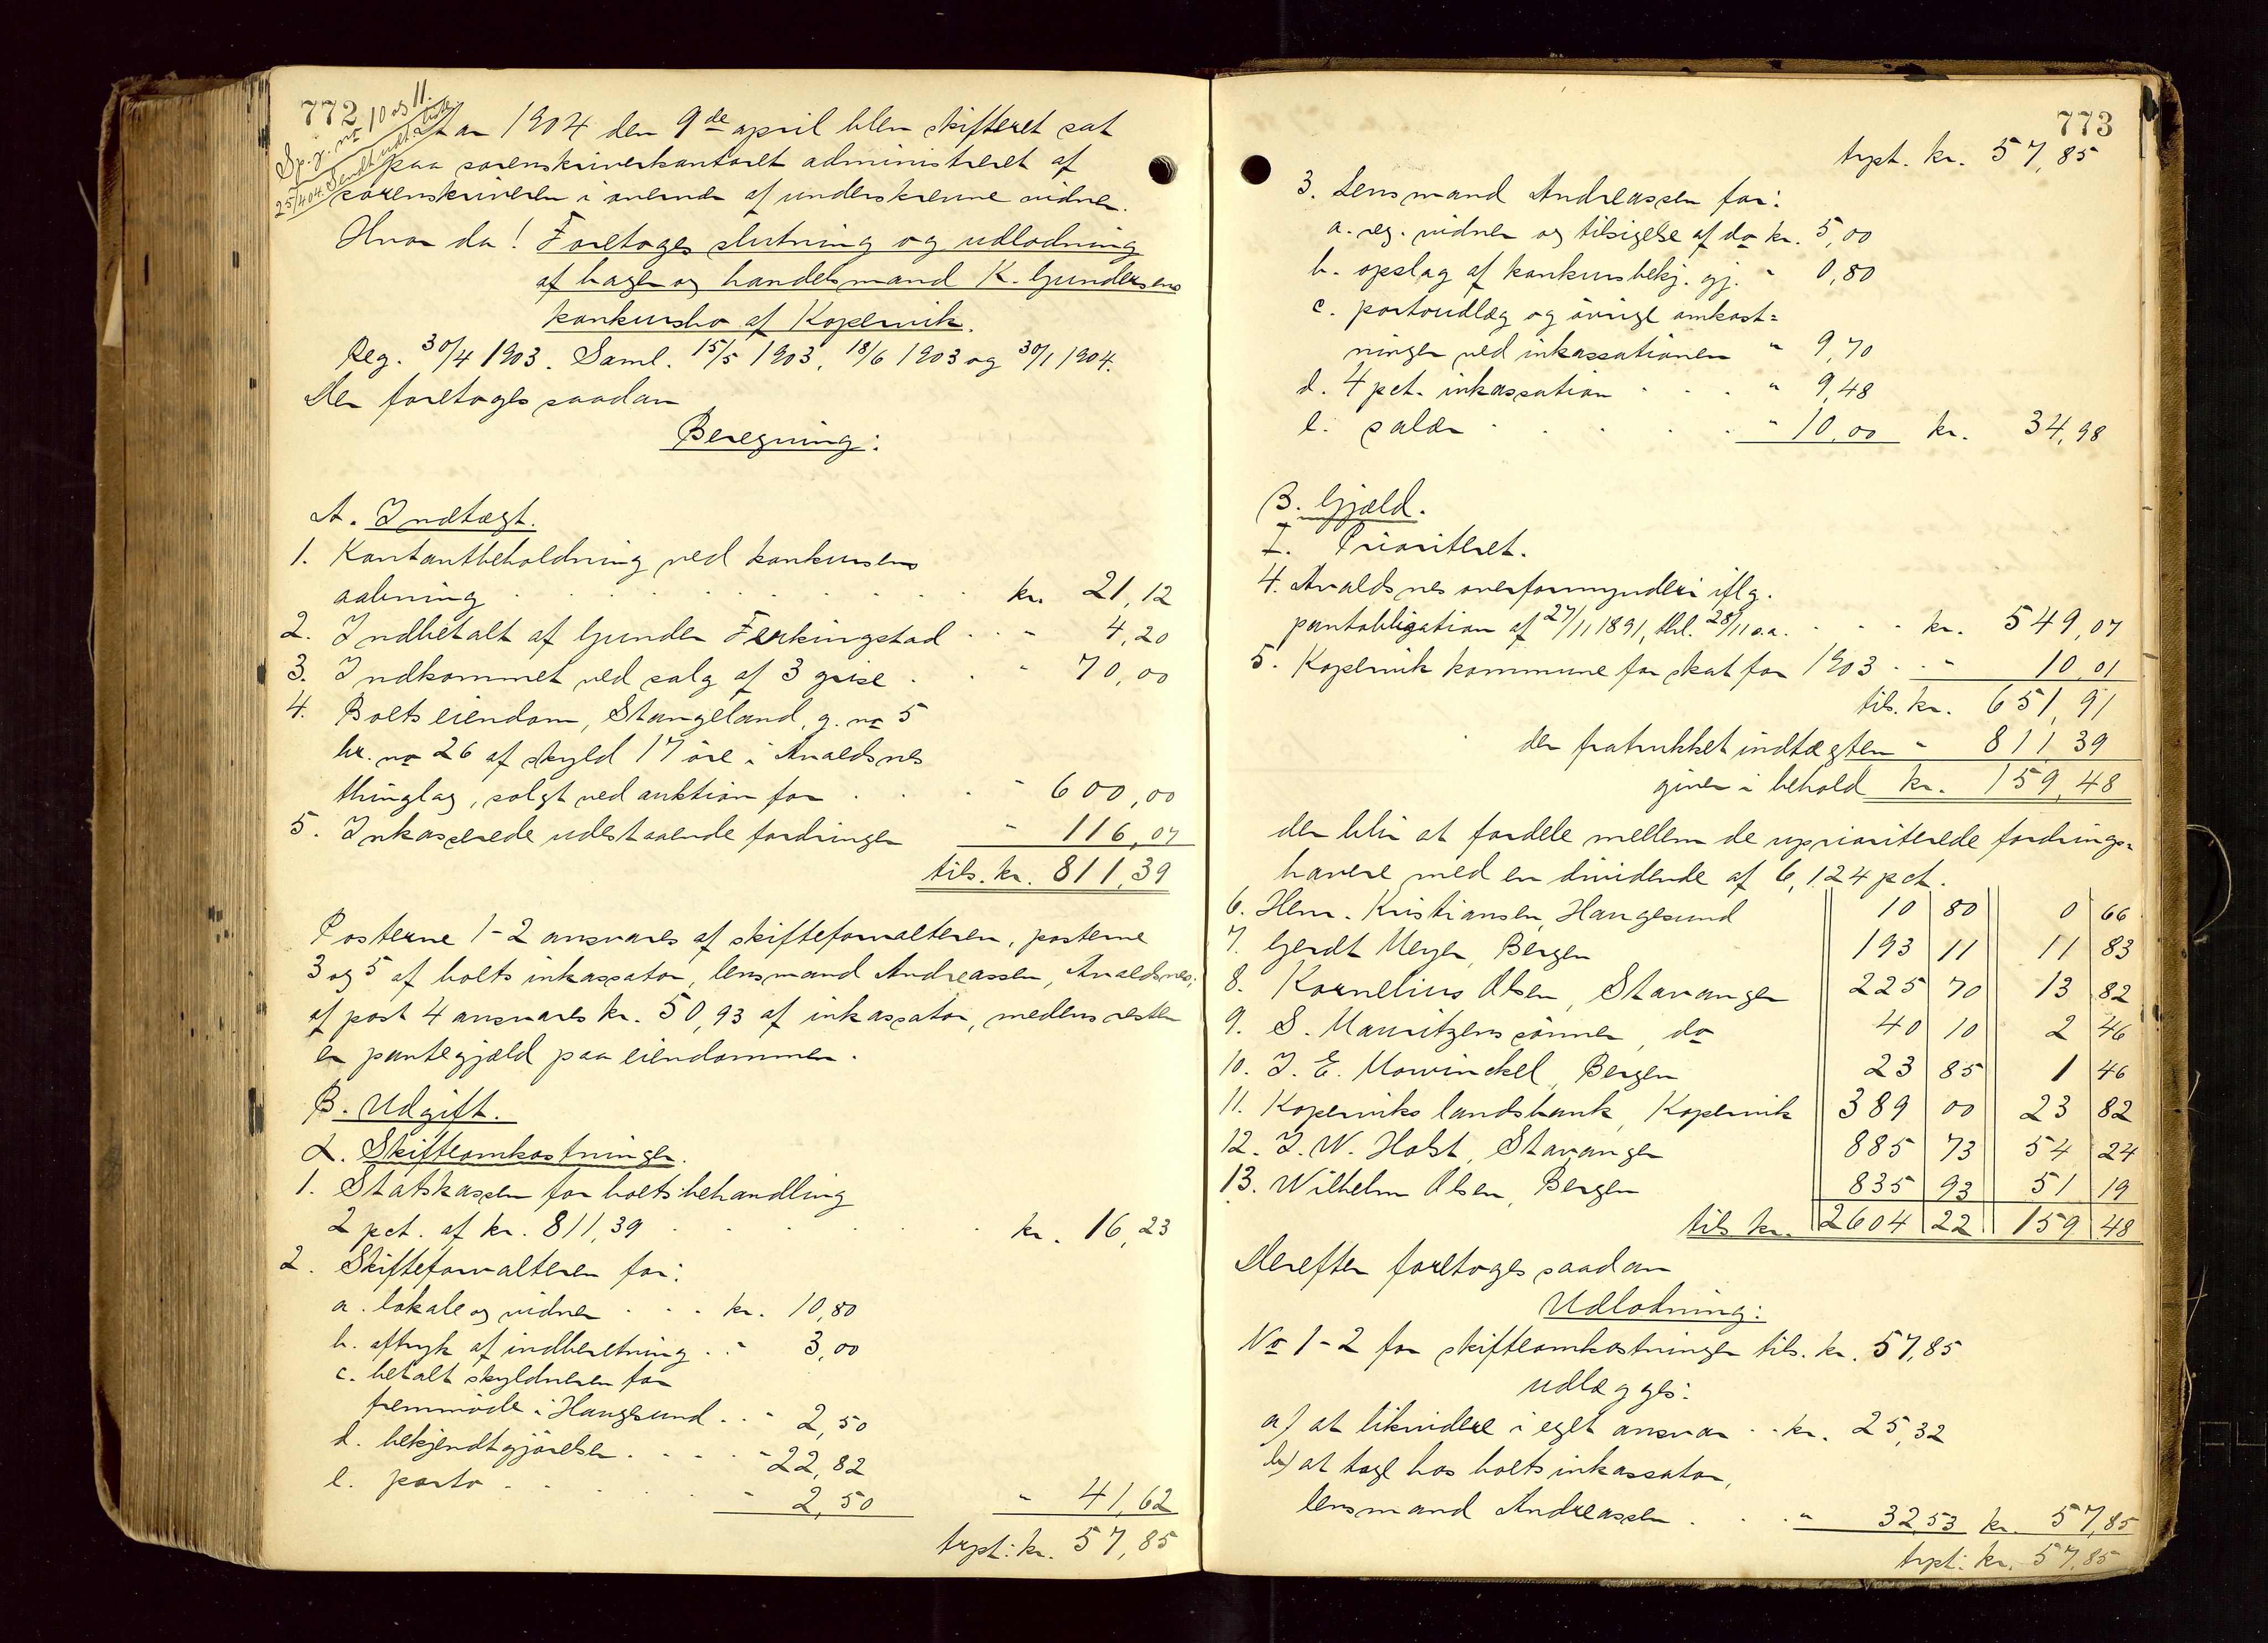 772
Sp. j. no 10 og 11.
25/4 04. Sendt udl. afskr.
Aar 1904 den 9de april blev skifteret sat
paa sorenskriverkontoret administreret af
sorenskriveren i overvær af underskrevne vidner.
Hvor da! Foretoges slutning og udlodning
af bager og handelsmand K. Gundersens
konkursbo af Kopervik.
Reg. 30/4 1903. Saml. 15/5 1903, 18/6 1903 og 30/1 1904.
Der foretoges saadan
Beregning:
A. Indtægt.
1. Kontantbeholdning ved konkursens
aabning . . . . kr. 21,12
2. Indbetalt af Gunder Ferkingstad . . " 4,20
3. Indkommet ved salg af 3 grise . . " 70,00
4. Boets eiendom, Stangeland, g. no 5
br. no 26 af skyld 17 öre i Avaldsnes
thinglag, solgt ved auktion for . . . " 600,00
5. Inkasserede udestaaende fordringer " 116,07
tils. kr. 811,39
Posterne 1-2 ansvares af skifteforvalteren, posterne
3 og 5 af boets inkassator, lensmand Andreassen, Avaldsnes;
af post 4 ansvares kr. 50,93 af inkassator, medens resten
er pantegjæld paa eiendommen.
B. Udgift.
α. Skifteomkostninger.
1. Statskassen for boets behandling
2 pct. af kr. 811,39 . . . . kr. 16,23
2. Skifteforvalteren for:
a. lokale og vidner . . . kr. 10,80
b. aftryk af indberetning . . " 3,00
c. betalt skyldneren for
fremmöde i Haugesund . . " 2,50
d. bekjendtgjörelser . . . . " 22,82
e. porto . . . . " 2,50 " 41,62
trpt: kr. 57,85
773
trpt. kr. 57,85
3. Lensmand Andreassen for:
a. reg. vidner og tilsigelse af do kr. 5,00
b. opslag af konkursbekj. gj. " 0,80
c. portoudlæg og övrige omkost=
ninger ved inkassationen " 9,70
d. 4 pct. inkassation . . . " 9,48
e. salær . . . . . " 10,00 kr. 34,98
B. Gjæld.
I. Prioriteret.
4. Avaldsnes overformynderi iflg.
pantobligation af 27/11 1891, thl. 28/11 s.a. . . . kr. 549,07
5. Kopervik kommune for skat for 1903 . . " 10,01
tils. kr. 651,91
der fratrukket indtægten " 811,39
giver i behold kr. 159,48
der blir at fordele mellem de uprioriterede fordrings=
havere med en dividende af 6,124 pct.
6. Henr. Kristiansen, Haugesund 10 80 0 66
7. Gerdt Meyer, Bergen 193 11 11 83
8. Kornelius Olsen, Stavanger 225 70 13 82
9. S. Mauritzens sönner, do 40 10 2 46
10. J. E. Mowinckel, Bergen 23 85 1 46
11. Koperviks landsbank, Kopervik 389 00 23 82
12. J. W. Holst, Stavanger 885 73 54 24
13. Wilhelm Olsen, Bergen 835 93 51 19
tils kr. 2604 22 159 48
Derefter foretoges saadan
Udlodning:
No 1-2 for skifteomkostninger tils. kr. 57,85
udlægges:
a) at likvidere i eget ansvar . . kr. 25,32
b) at tage hos boets inkassator,
lensmand Andreassen . . . " 32,53 kr. 57,85
trpt: kr. 57,85